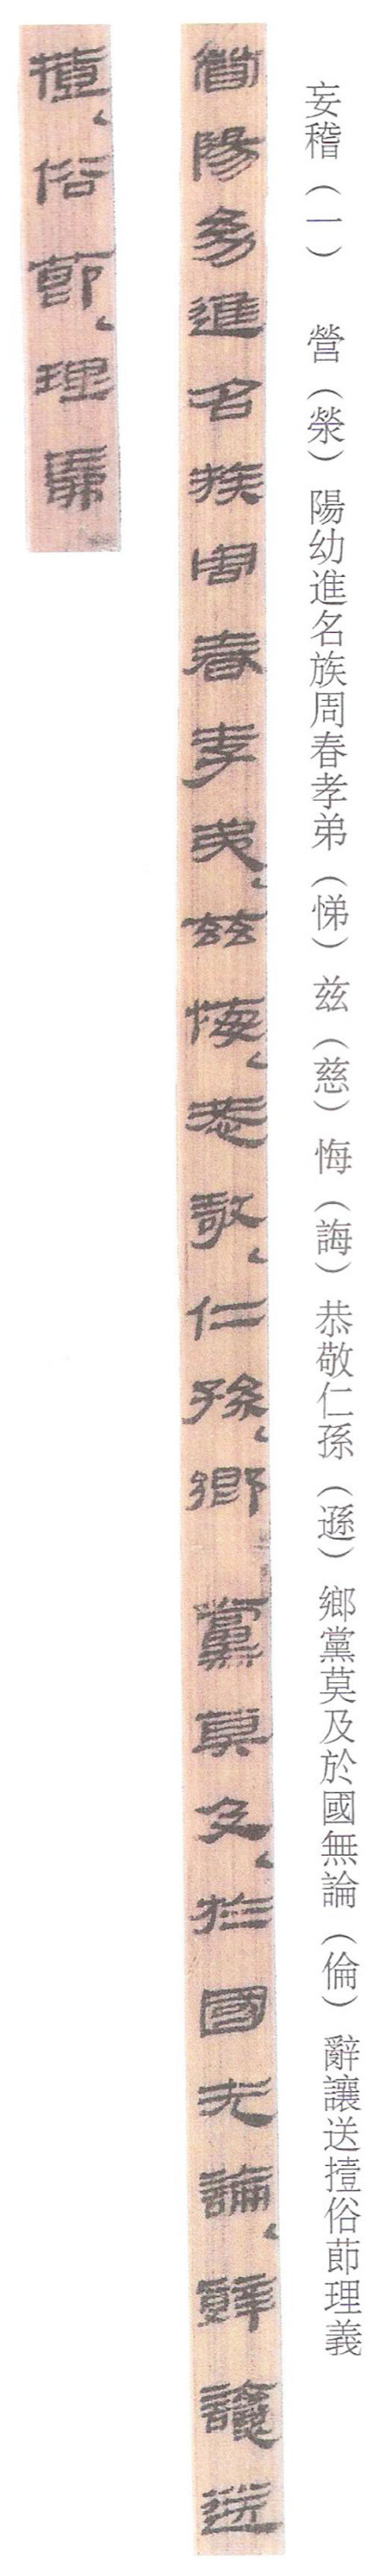 妄稽（一）　營（滎）陽幼進名族周春孝弟（悌）兹（慈）悔（誨）恭敬仁孫（遜）鄉黨莫及於國無論（倫）辭讓送撎俗莭理義
營陽幼進名族周春孝弟、兹悔、恭敬、仁孫、鄉黨莫及、於國无論、辭讓送
撎、俗莭、理義